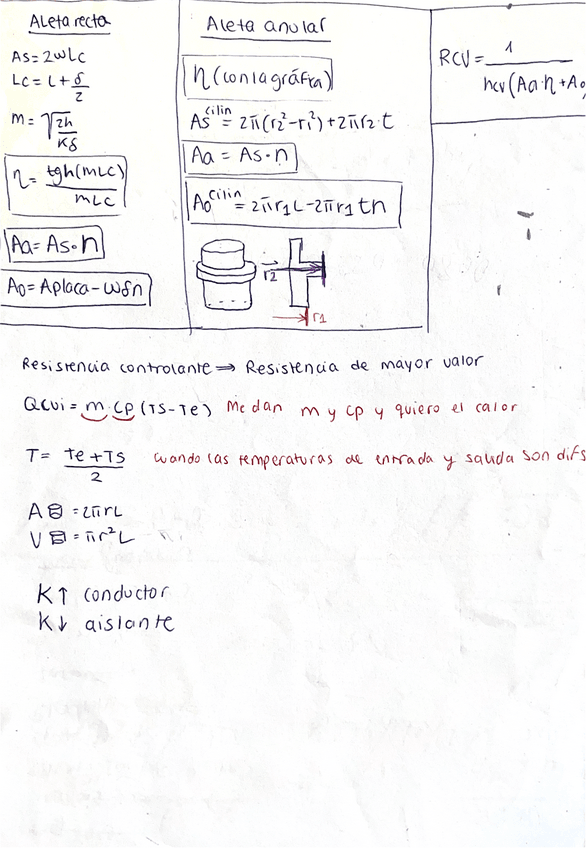 Aleta recta
As = 2wLc
Lc = L + δ/2
m = √(2h/Kδ)
η = tgh(mLc)/mLc
Aa = As·n
Ao = Aplaca - wδn
Aleta anular
η (con la gráfica)
As cilin = 2π(r2² - r1²) + 2πr2·t
Aa = As·n
Ao cilin = 2πr1L - 2πr1tn
r2
r1
RCV = 1/hcv(Aa·η + Ao
Resistencia controlante ⇒ Resistencia de mayor valor
Qcvi = m·Cp (Ts - Te) Me dan m y cp y quiero el calor
T = Te + Ts/2 cuando las temperaturas de entrada y salida son difs
A = 2πrL
V = πr²L
K↑ conductor
K↓ aislante